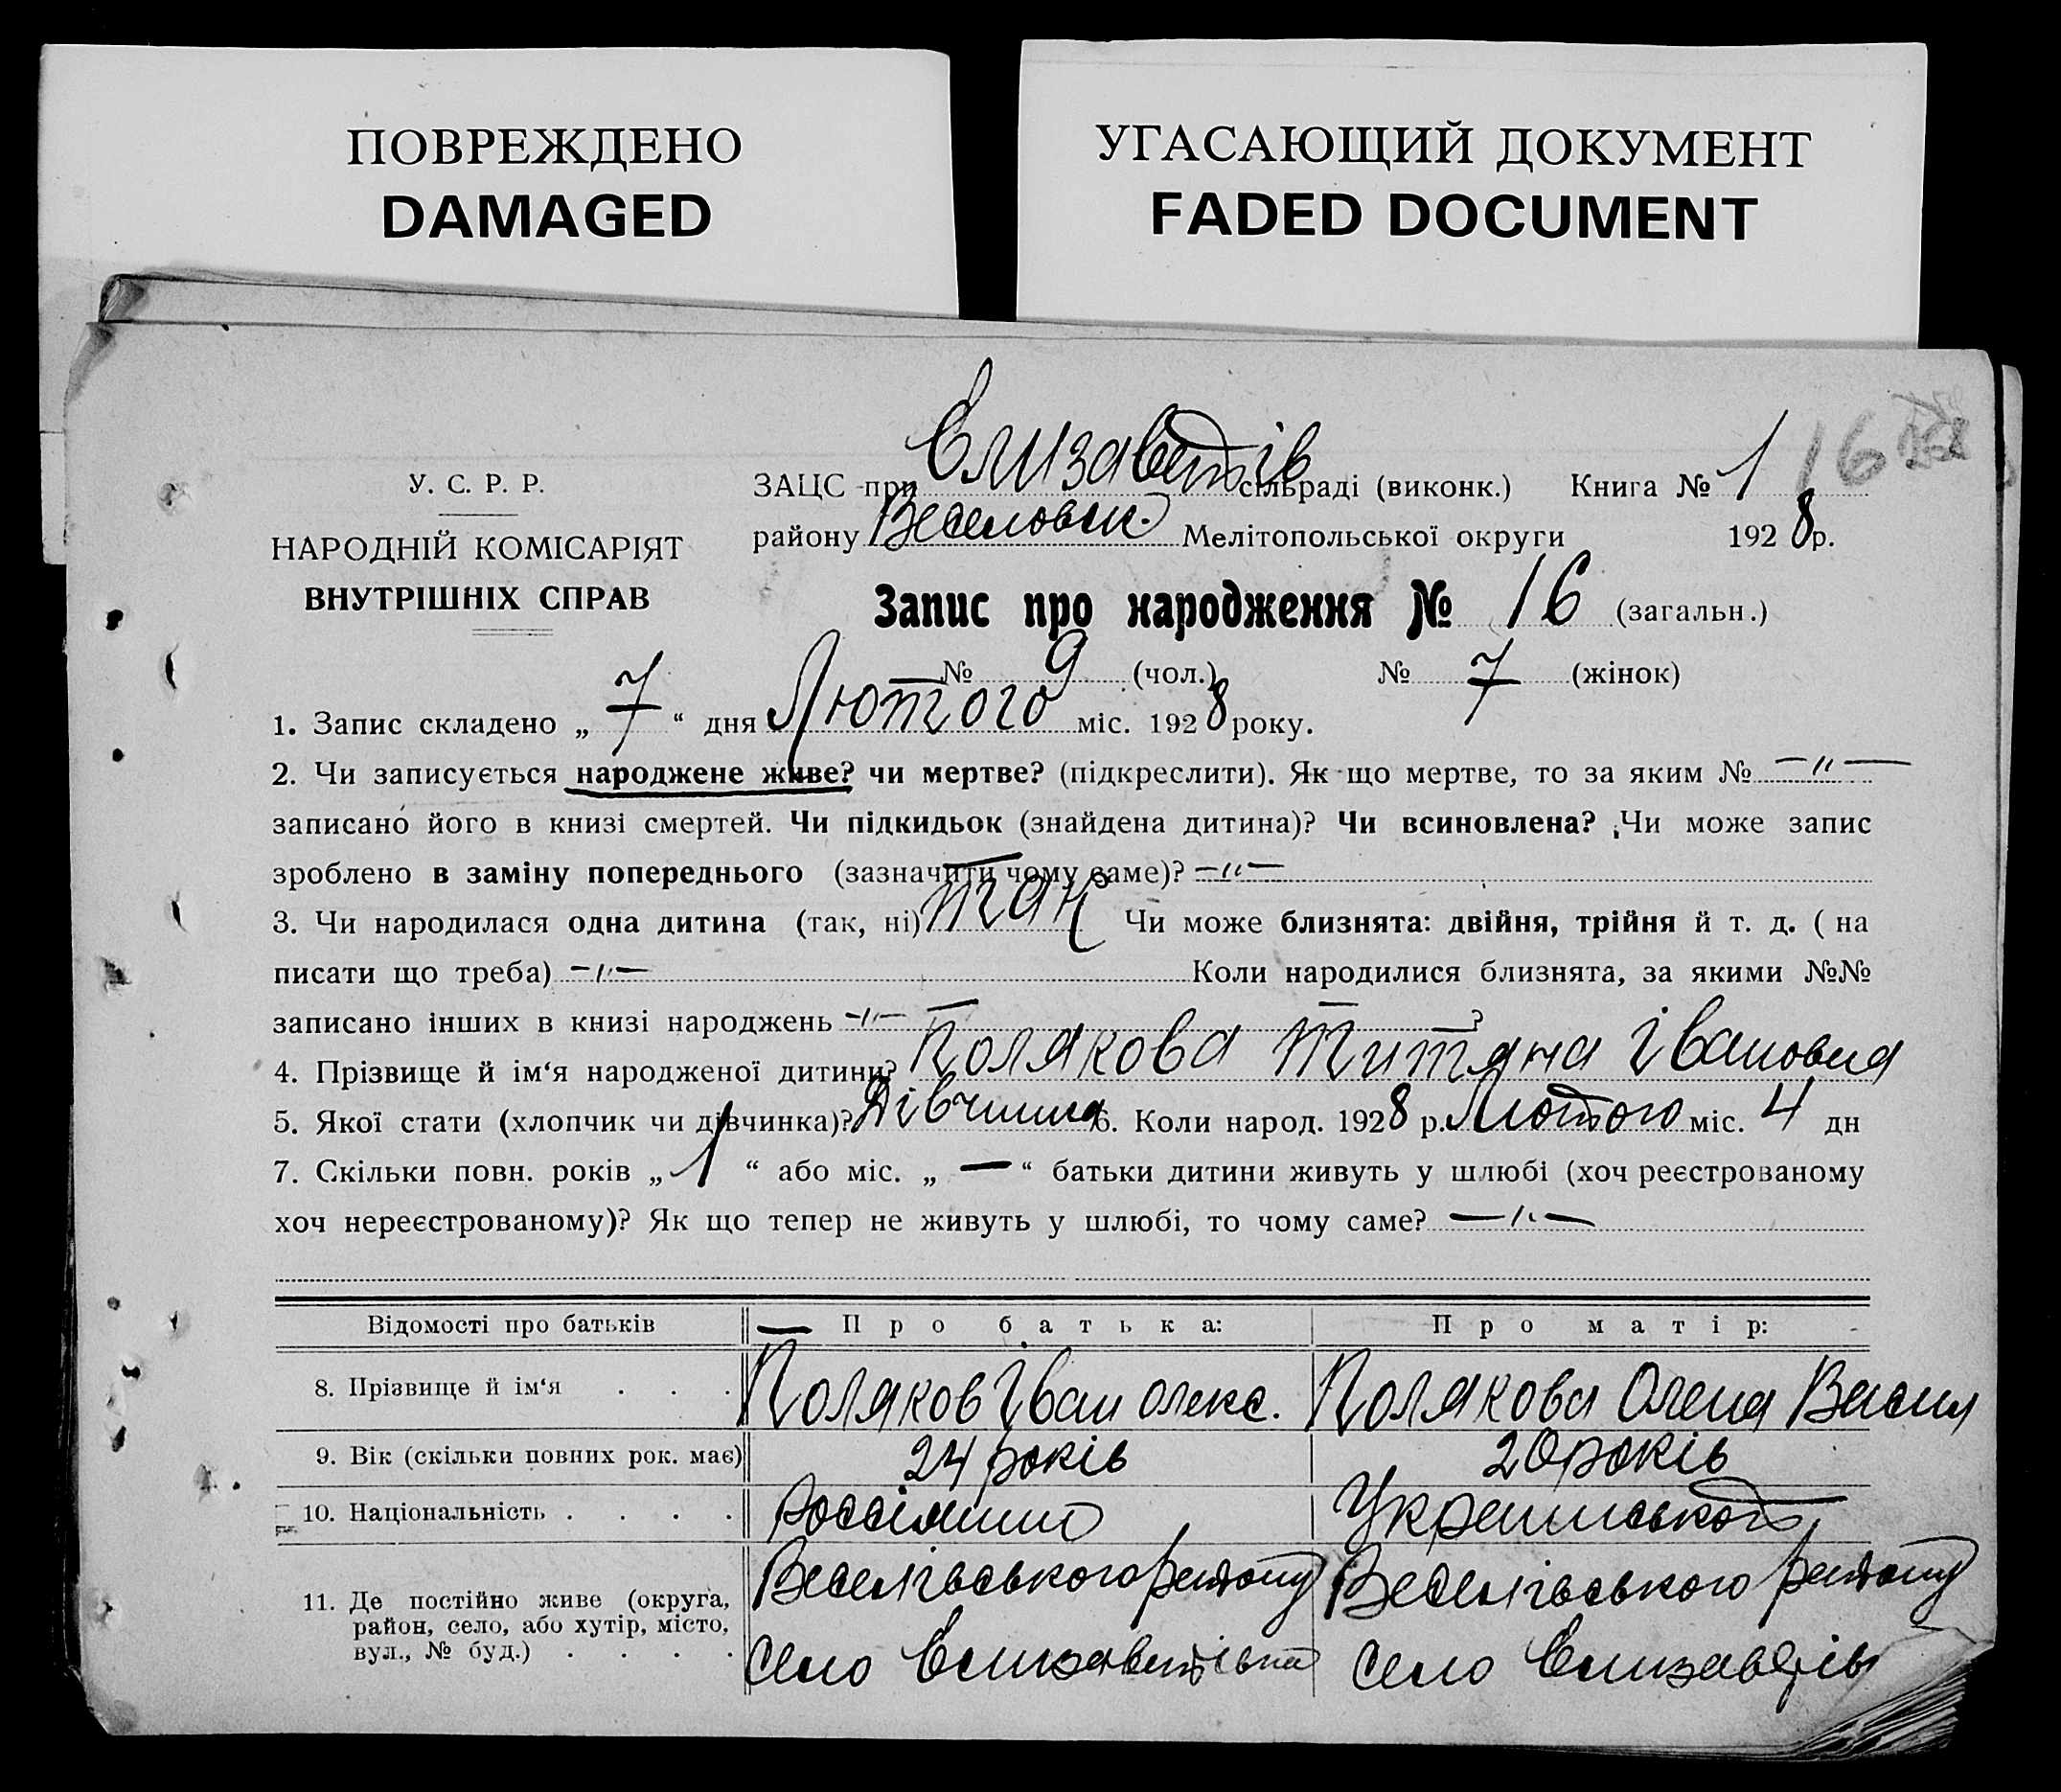 ПОВРЕЖДЕНО
DAMAGED
УГАСАЮЩИЙ ДОКУМЕНТ
FADED DOCUMENT
16
У. С. Р. Р.
НАРОДНІЙ КОМІСАРІЯТ
ВНУТРІШНІХ СПРАВ
ЗАЦС при Єлизаветів сільраді (виконк.) Книга № 1
району Веселовск. Мелітопольської округи 1928 р.
Запис про народження № 16 (загальн.)
№ 9 (чол.) № 7 (жінок)
1. Запис складено „ 7 “ дня Лютого міс. 1928 року.
2. Чи записується народжене живе? чи мертве? (підкреслити). Як що мертве, то за яким № —"—
записано його в книзі смертей. Чи підкидьок (знайдена дитина)? Чи всиновлена? Чи може запис
зроблено в заміну попереднього (зазначити чому саме)? —"—
3. Чи народилася одна дитина (так, ні) так Чи може близнята: двійня, трійня й т. д. ( на
писати що треба) —"— Коли народилися близнята, за якими №№
записано інших в книзі народжень —"— ?
4. Прізвище й ім‘я народженої дитини? Полякова Титяна Івановна
5. Якої стати (хлопчик чи дівчинка)? Дівчинка 6. Коли народ. 1928 р. Лютого міс. 4 дн
7. Скільки повн. років „ 1 “ або міс. „ — “ батьки дитини живуть у шлюбі (хоч реєстрованому
хоч нереєстрованому)? Як що тепер не живуть у шлюбі, то чому саме? —"—
Відомості про батьків Про батька: Про матір:
8. Прізвище й ім‘я . . . Поляков Іван Олекс. Полякова Олена Васил
9. Вік (скільки повних рок. має) 24 років 20 років
10. Національність . . . . Украинською
11. Де постійно живе (округа,
район, село, або хутір, місто,
вул., № буд.) . . . .
Веселівського району Веселівського району
село Єлизаветівка село Єлизаветів